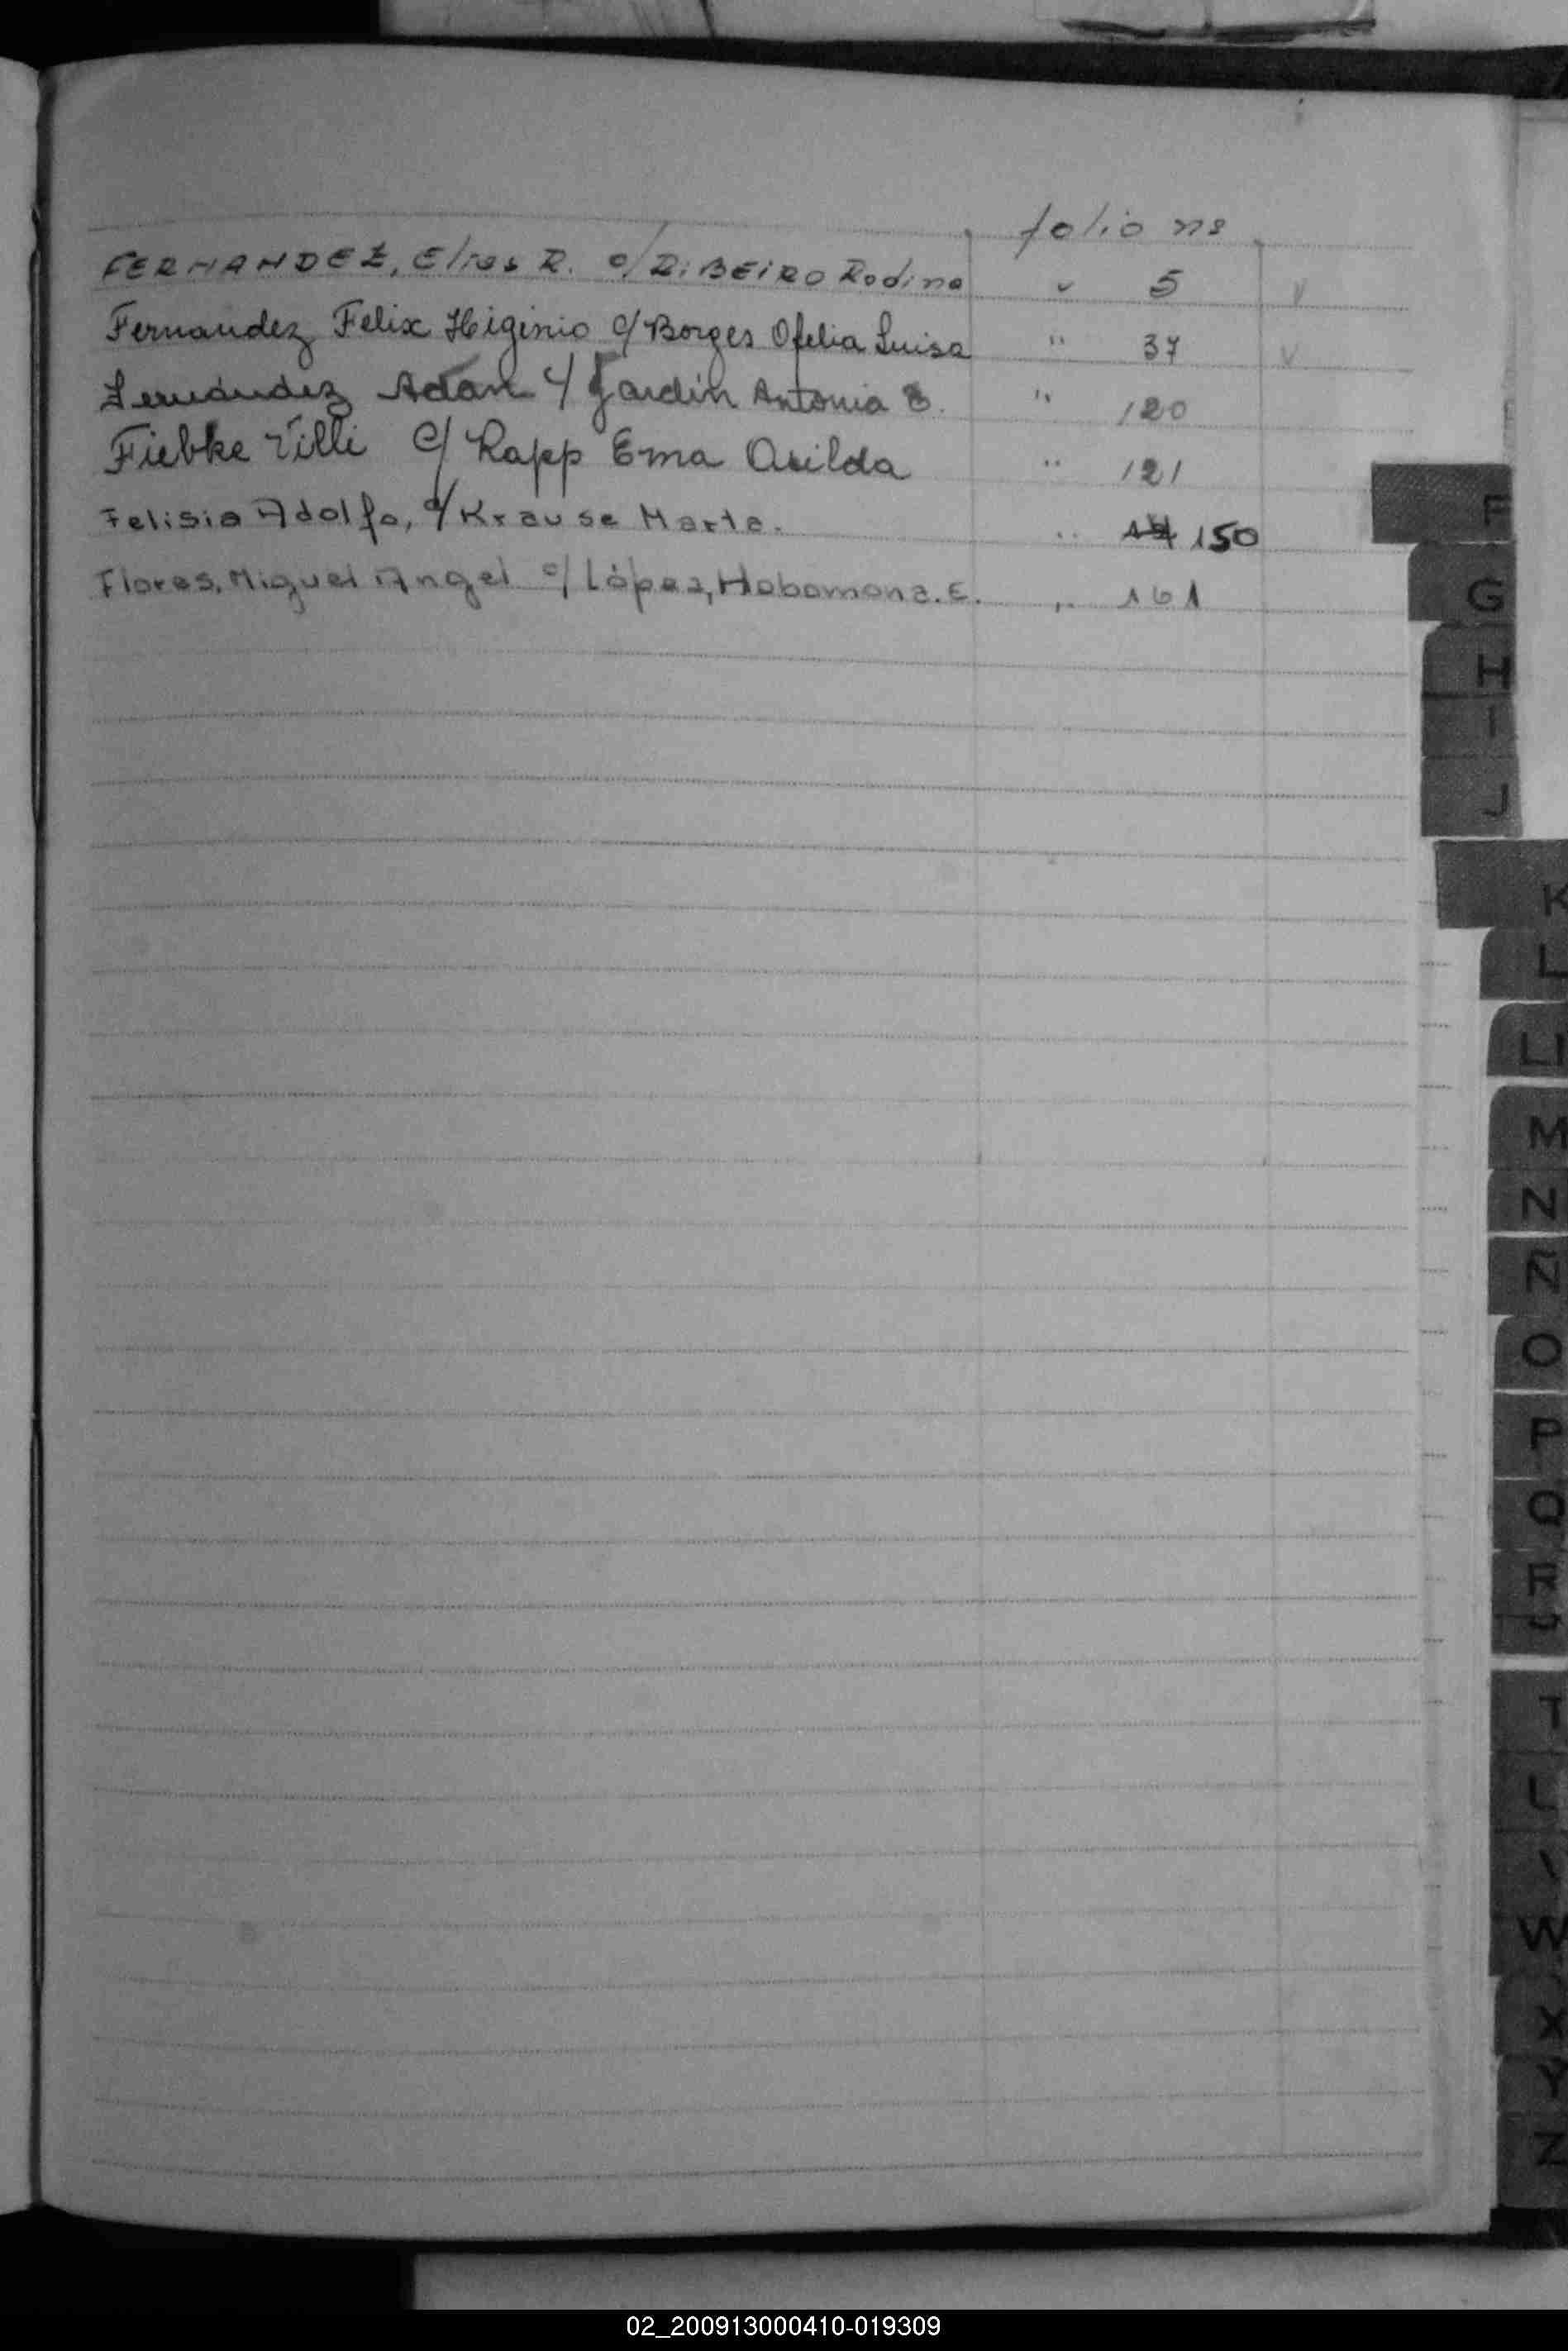 folio nº
FERNANDEZ, Elias R. c/ RiBEiRO Rodina " 5 v
Fernandez Felix Higinio c/ Borges Ofelia Luisa " 37 v
Fernández Adan c/ Jardin Antonia " 120
Fiebke Villi c/ Rapp Ema Asilda " 121
Felisia Adolfo, c/ Krause Marta. " 150
Flores, Miguel Angel c/ López, E. " 161
F
G
H
I
J
K
L
Ll
M
N
Ñ
O
P
Q
R
T
W
X
Y
Z
02_200913000410-019309